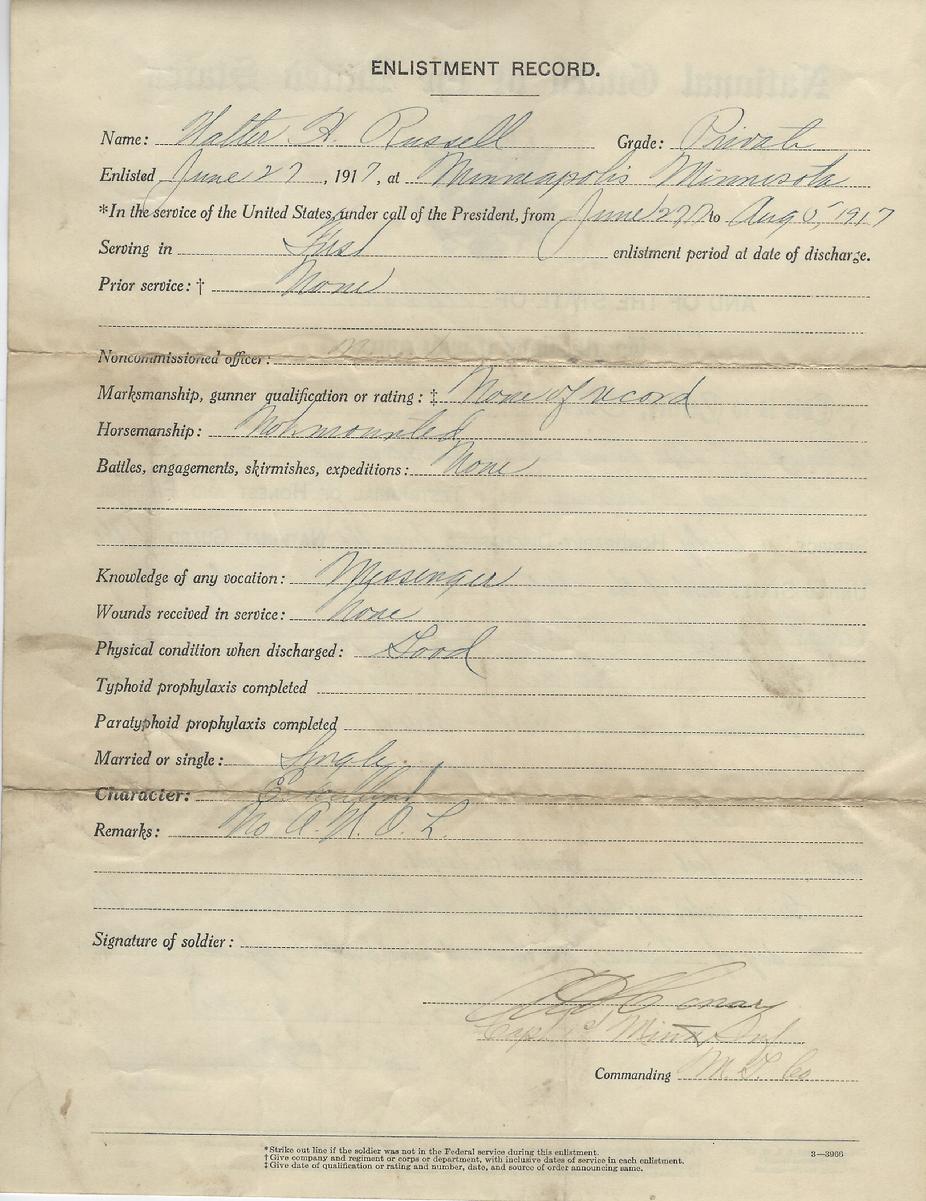 ENLISTMENT RECORD.
Name: Walter H. Russell Grade: Private
Enlisted June 27, 1917, at Minneapolis Minnesota
*In the service of the United States, under call of the President, from June 27, to Aug 5, 1917
Serving in First enlistment period at date of discharge.
Prior service: † None
Noncommissioned officer:
Marksmanship, gunner qualification or rating: ‡ None of record
Horsemanship: Not mounted
Battles, engagements, skirmishes, expeditions: None
Knowledge of any vocation: Messenger
Wounds received in service: None
Physical condition when discharged: Good
Typhoid prophylaxis completed
Paratyphoid prophylaxis completed
Married or single: Single
Character: Excellent
Remarks: No A. W. O. L.
Signature of soldier:
Capt 1st Minn Inf
Commanding Co
*Strike out line if the soldier was not in the Federal service during this enlistment.
† Give company and regiment or corps or department, with inclusive dates of service in each enlistment.
‡ Give date of qualification or rating and number, date, and source of order announcing same.
3—3966